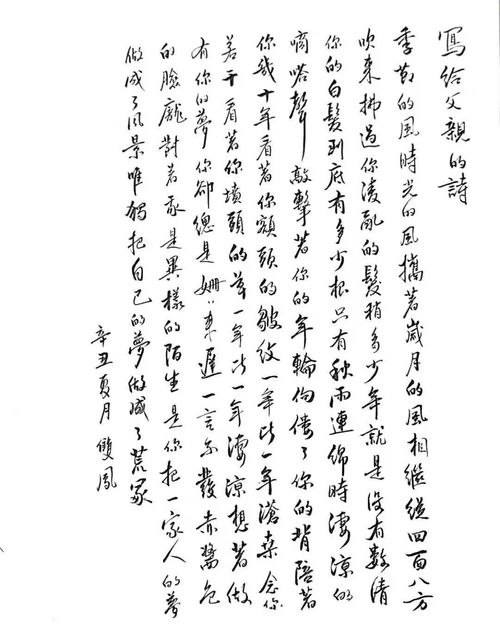 寫給父親的詩
季節的風時光的風攜著歲月的風相繼從四面八方
吹來拂過你淩亂的髮梢多少年就是沒有數清
你的白髮到底有多少根只有秋雨連綿時淒涼的
嘀嗒聲敲擊著你的年輪佝僂了你的背陪著
你幾十年看著你額頭的皺紋一年比一年滄桑念你
若干看著你墳頭的草一年比一年淒涼想著做
有你的夢你卻總是姍〻來遲一言不發赤醬色
的臉龐對著我是異樣的陌生是你把一家人的夢
做成了風景唯獨把自己的夢做成了荒冢
辛丑夏月雙鳳